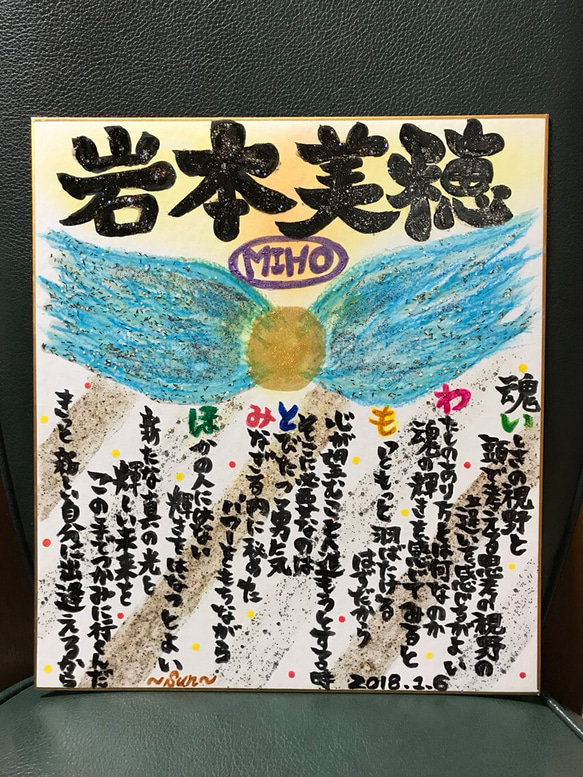 岩本美穂
MIHO
魂いしきの視野と
頭で考える思考の視野の
違いを感じるがよい
わたしのあり方とは何なのか
魂の輝きを感じてみると
もっともっと羽ばたける
はずだから
心が望むことへ進もうとする時
そこに必要なのは
とびたつ勇気
みなぎる内に秘めた
パワーをもちながら
ほかの人にはない
輝きをはなつとよい
新たな真の光と
輝しい未来を
この手でつかみに行くんだ
きっと新しい自分に出逢えるから
~Sun~
2018.1.6